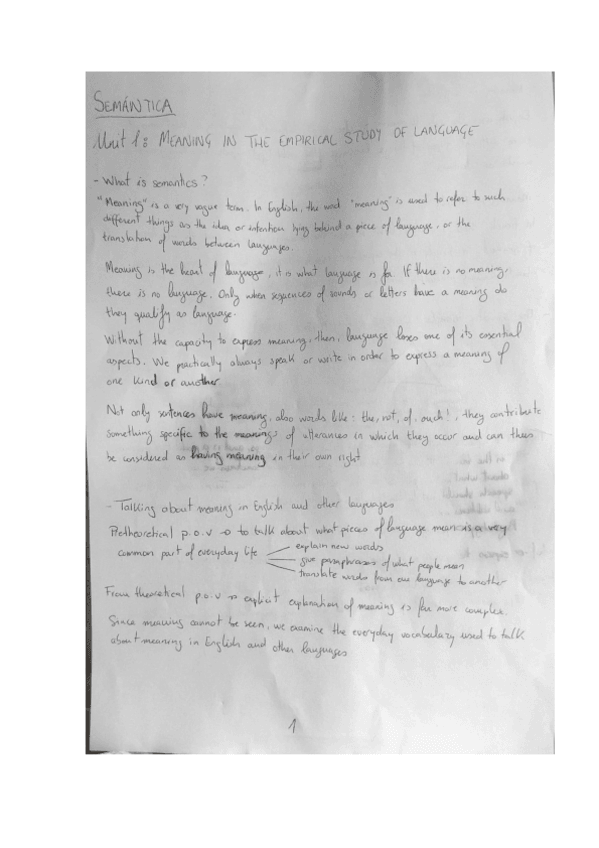 SEMÁNTICA
Unit 1: MEANING IN THE EMPIRICAL STUDY OF LANGUAGE
- What is semantics?
"Meaning" is a very vague term. In English, the word "meaning" is used to refer to such
different things as the idea or intention lying behind a piece of language, or the
translation of words between languages.
Meaning is the heart of language, it is what language is for. If there is no meaning,
there is no language. Only when sequences of sounds or letters have a meaning do
they qualify as language.
Without the capacity to express meaning, then, language loses one of its essential
aspects. We practically always speak or write in order to express a meaning of
one kind or another.
Not only sentences have meaning, also words like: the, not, of, ouch!, they contribute
something specific to the meanings of utterances in which they occur and can thus
be considered as having meaning in their own right
- Talking about meaning in English and other languages
Pretheoretical p.o.v → to talk about what pieces of language mean is a very
common part of everyday life
explain new words
give paraphrases of what people mean
translate words from one language to another
From theoretical p.o.v → explicit explanation of meaning is far more complex.
Since meaning cannot be seen, we examine the everyday vocabulary used to talk
about meaning in English and other languages
1